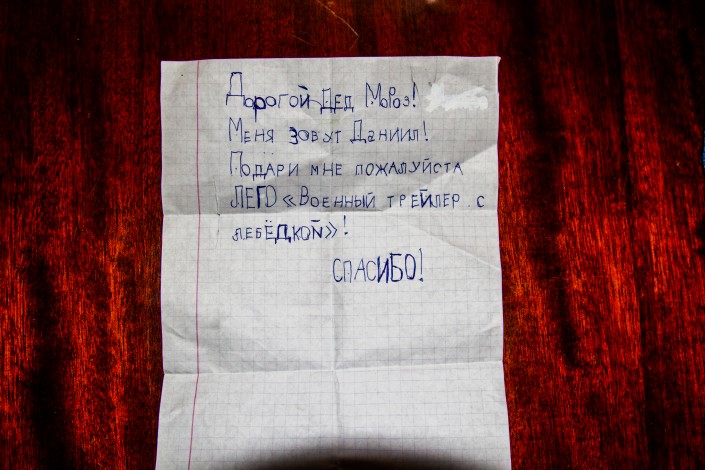 Дорогой Дед Мороз!
Меня зовут Даниил!
Подари мне пожалуйста
ЛЕГО «Военный трейлер с
лебёдкой»!
СПАСИБО!